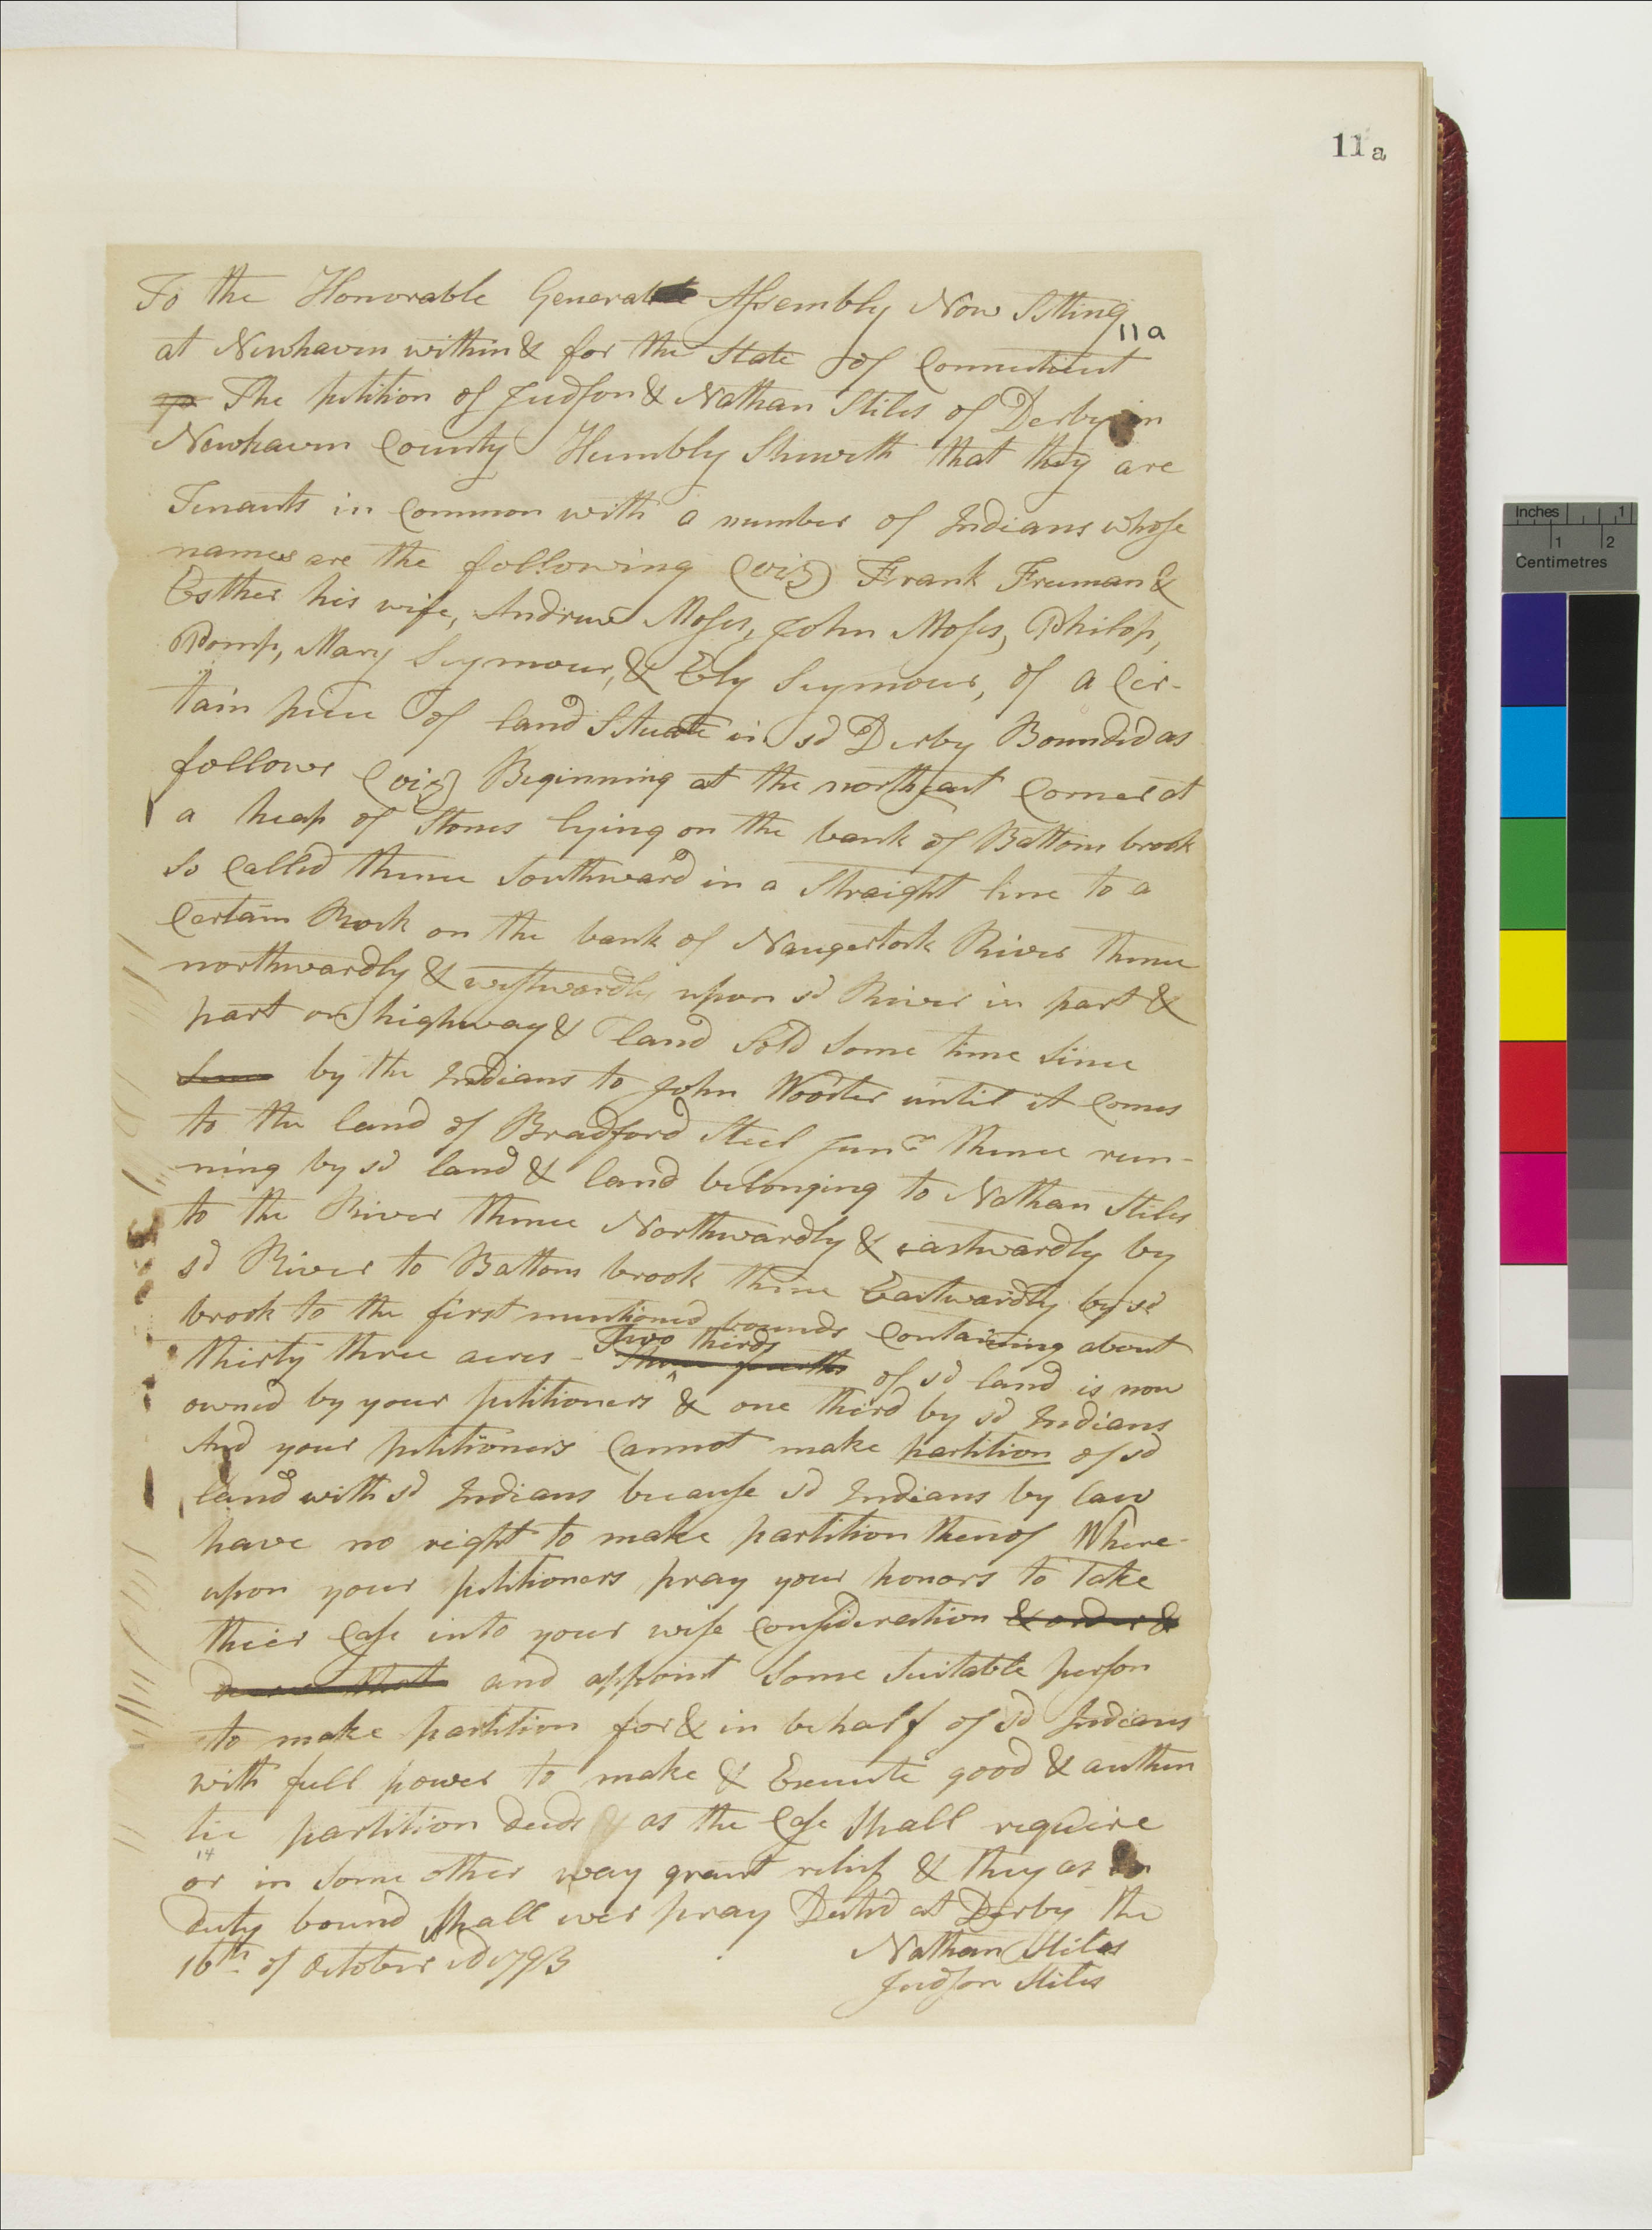 11a
To the Honorable General Assembly Now Sitting
11a
at Newhaven within & for the State of Connecticut
The petition of Judson & Nathan Stiles of Derby in
Newhaven County Humbly Sheweth that they are
Tenants in Common with a number of Indians whose
names are the following (viz) Frank Freeman &
Esther his wife, Andrew Moses, John Moses, Philop,
Pomp, Mary Seymour, & Ely Seymour, of a Cer-
tain piece of land Situate in sd Derby Bounded as
follows (viz) Beginning at the northeast Corner at
a heap of Stones lying on the bank of Battons brook
So Called thence Southward in a Straight line to a
Certain Rock on the bank of Naugertock River thence
northwardly & westwardly upon sd River in part &
part on highway & land Sold Some time Since
by the Indians to John Wooster until it Comes
to the land of Bradford Steel Junr thence run-
ning by sd land & land belonging to Nathan Stiles
to the River thence Northwardly & eastwardly by
sd River to Battons brook thence Eastwardly by sd
brook to the first mentioned bounds Containing about
Two thirds
thirty three acres - Three fourths of sd land is now
owned by your petitioners & one third by sd Indians
And your petitioners Cannot make partition of sd
land with sd Indians because sd Indians by law
have no right to make partition thereof Where-
upon your petitioners pray your honors to take
thier Case into your wise Consideration & order &
and appoint Some Suitable person
to make partition for & in behalf of sd Indians
with full power to make & Execute good & authen
tic partition deeds as the Case Shall require
14
or in Some other way grant relief & they as in
duty bound Shall ever pray Dated at Derby the
16th of October AD 1793
Nathan Stiles
Judson Stiles
Inches 1
1 2
Centimetres